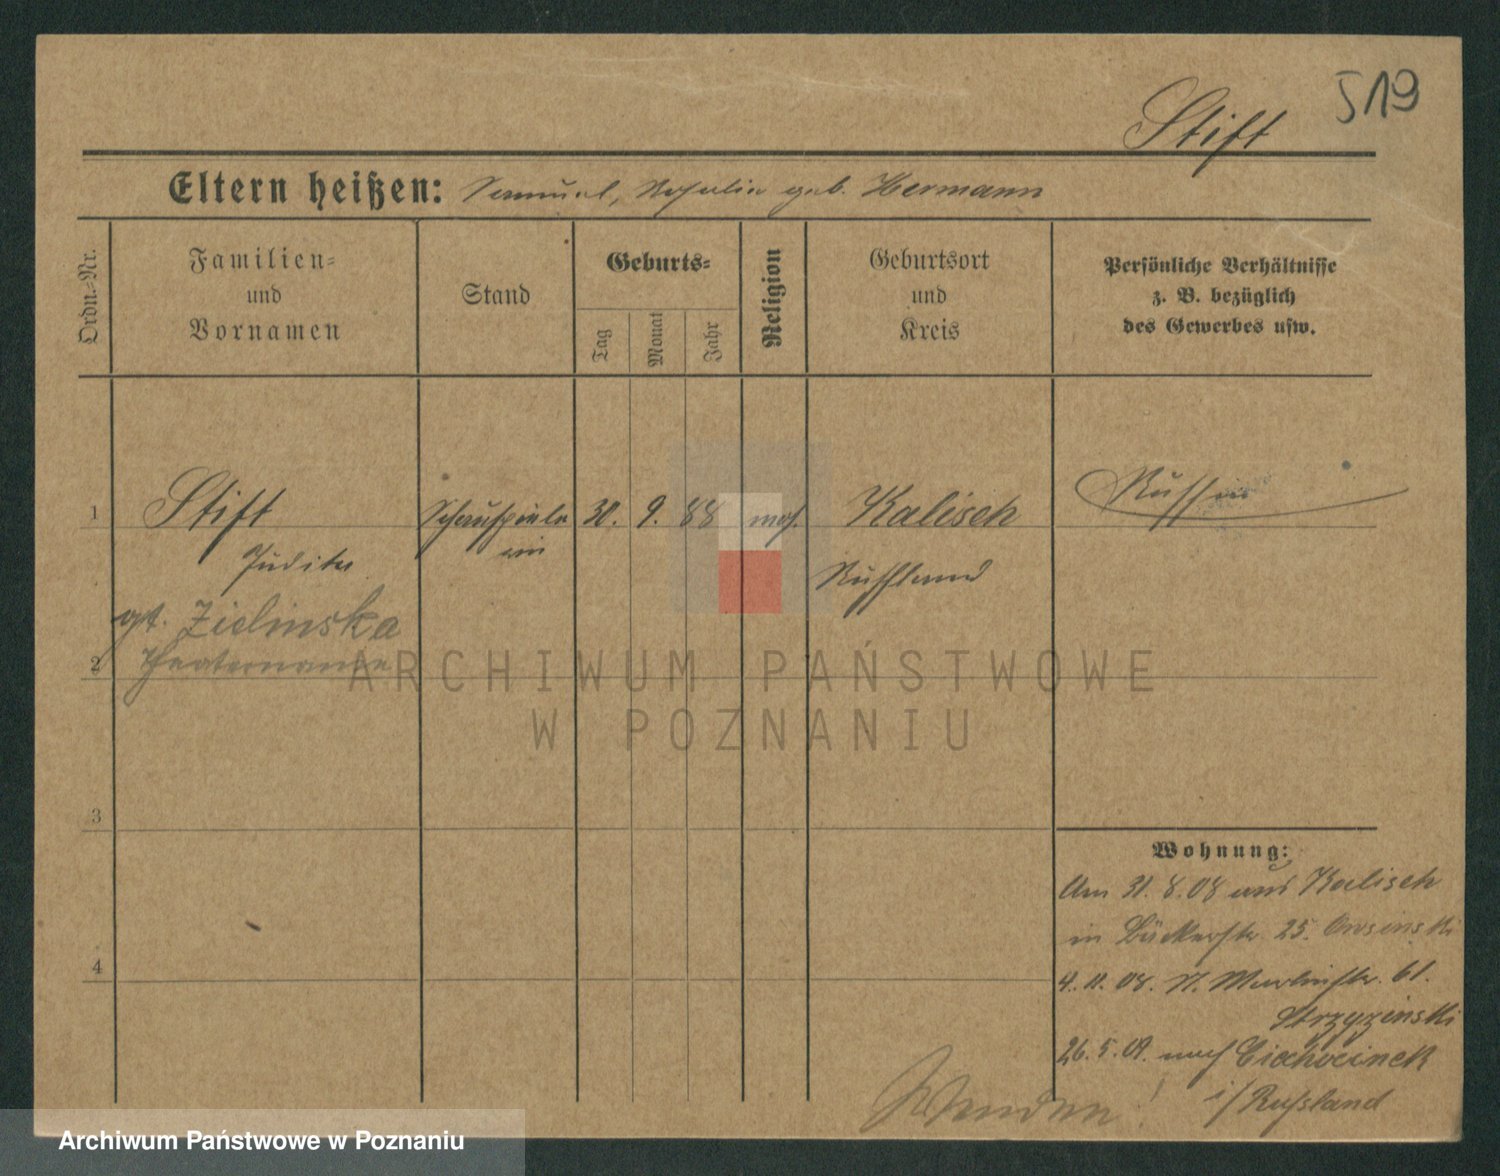 519
Stift
Eltern heißen: Samuel, Rosalie geb. Hermann
Ordn.-Nr.
Familien-
und
Vornamen
Stand
Geburts-
Tag
Monat
Jahr
Religion
Geburtsort
und
Kreis
Persönliche Verhältnisse
z. B. bezüglich
des Gewerbes usw.
1 Stift Schauspiele 30. 9. 88 mos. Kalisch Russin
Judita rin Russland
gt. Zielinska
2 Theatername
ARCHIWUM PAŃSTWOWE
W POZNANIU
3
Wohnung:
Am 31.8.08 aus Kalisch
in Bäckerstr. 25.
4
4.11.08. N. 61.
Strzyzinski
26.5.09. nach Ciechocinek
i/Russland
Wenden!
Archiwum Państwowe w Poznaniu